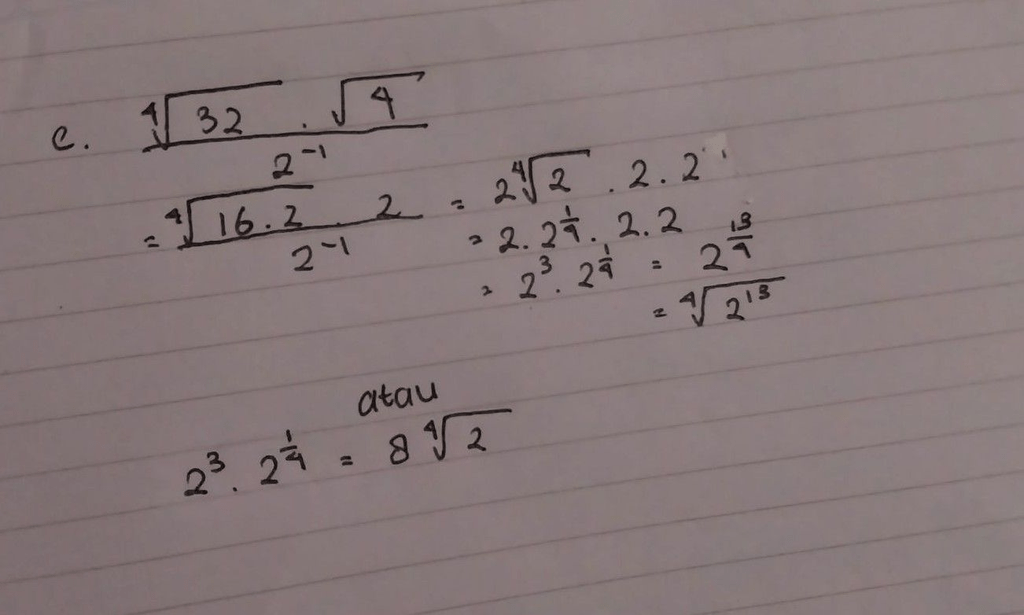 c. ⁴√32 . √4 / 2⁻¹
= ⁴√16.2 . 2 / 2⁻¹ = 2 ⁴√2 . 2 . 2
= 2 . 2^(1/4) . 2 . 2
= 2³ . 2^(1/4) = 2^(13/4)
= ⁴√2¹³
atau
2³ . 2^(1/4) = 8 ⁴√2